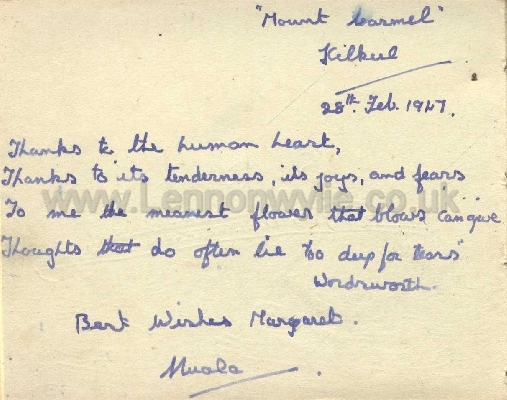 "Mount Carmel"
Kilkeel
28th Feb. 1947.
Thanks to the human heart,
Thanks to its tenderness, its joys, and fears
www.Lennonwylie.co.uk
To me the meanest flower that blows can give
Thoughts that do often lie to deep for tears"
Wordsworth.
Best Wishes Margaret.
Nuala